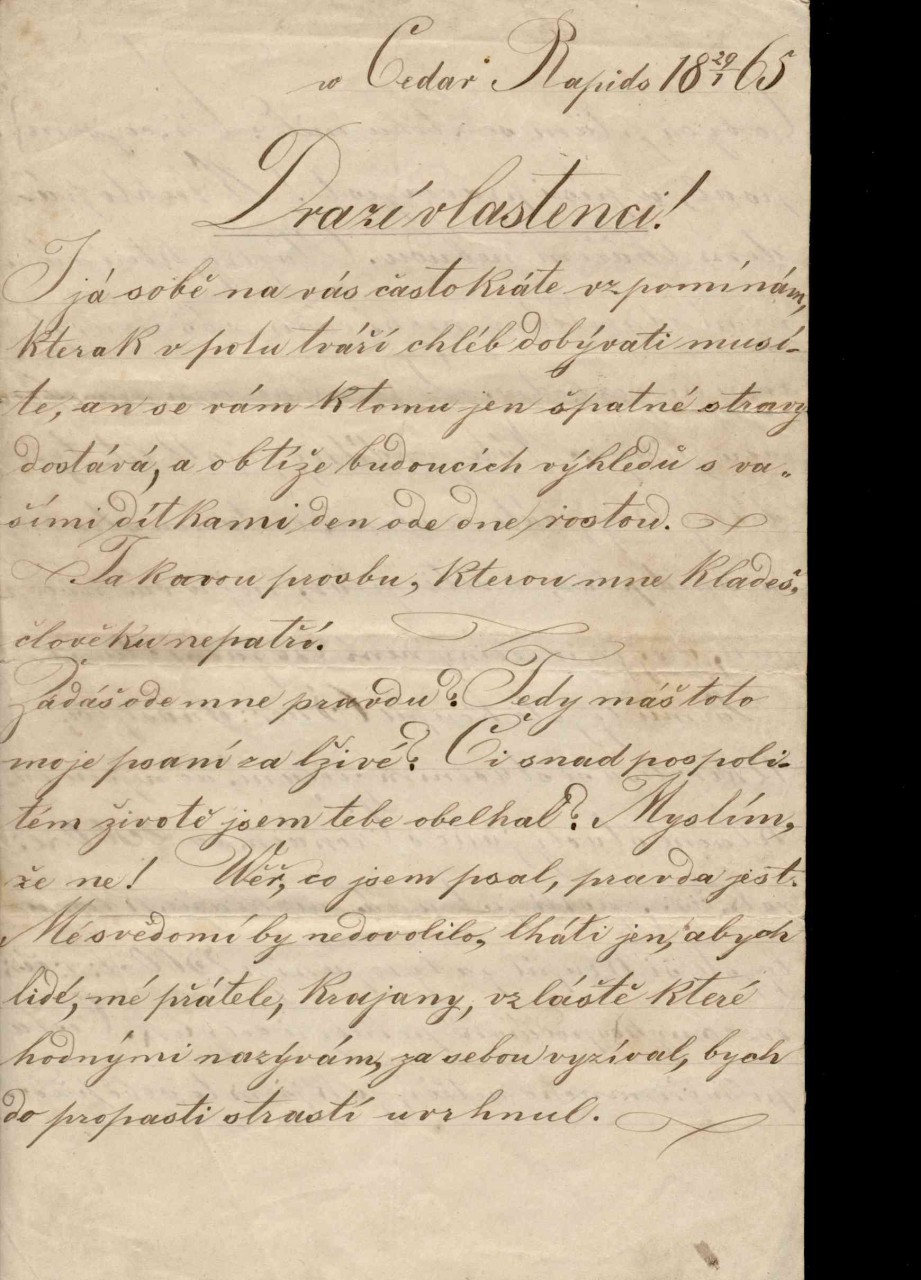 w Cedar Rapids 18 29/1 65
Drazí vlastenci!
I já sobě na vás častokráte vzpomínám,
kterak v potu tváří chléb dobývati musí-
te, an se vám k tomu jen špatné stravy
dostává, a obtíže budoucích výhledů s va-
šími dítkami den ode dne rostou.
Takovou prosbu, kterou mne kladeš,
člověku nepatří.
Žádáš ode mne pravdu? Tedy máš toto
moje psaní za lživé? Či snad pospoli-
tém životě jsem tebe obelhal? Myslím,
že ne! Wěř, co jsem psal, pravda jest.
Mé svědomí by nedovolilo, lháti jen, abych
lidé, mé přátele, krajany, vzláště které
hodnými nazývám, za sebou vyzíval, bych
do propasti strastí uvrhnul.